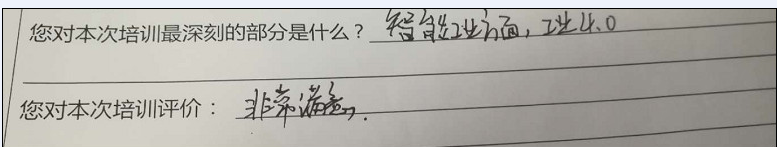 您对本次培训最深刻的部分是什么？ 智能工业方面，工业4.0
您对本次培训评价： 非常满意.